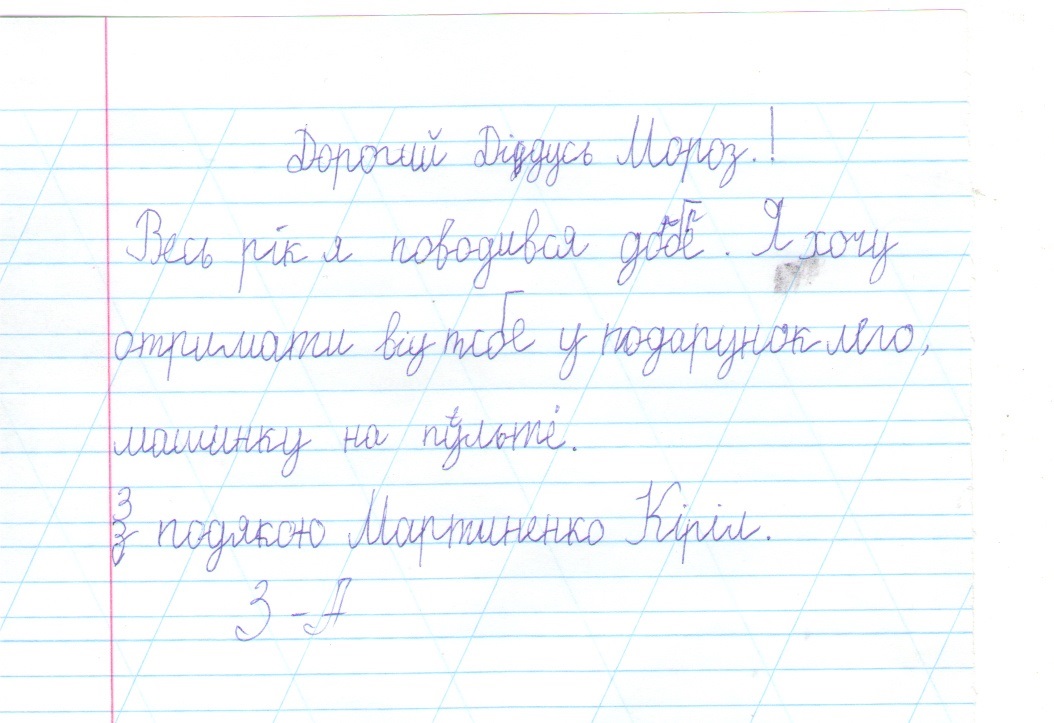 Дорогий Діддусь Мороз.!
Весь рік я поводився добе. Я хочу
отримати від тебе у подарунок лего,
машинку на пульті.
З подякою Мартиненко Кіріл.
3-А